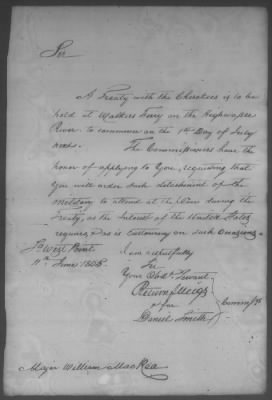 Sir
A Treaty with the Cherokees is to be
held at Walkers Ferry on the Highwassee
River to commence on the 1st Day of July
next. The Commissioners have the
honor of applying to You, requesting that
You will order such detachment of the
Military to attend at the during the
Treaty, as the Interest of the United States
requires, & as is customary on such occasions
So West Point
11th June 1805
I am respectfully
Sir
Your Obdt. Servant
Return J Meigs
& for
Daniel Smith
Commrs
Major William MacRea